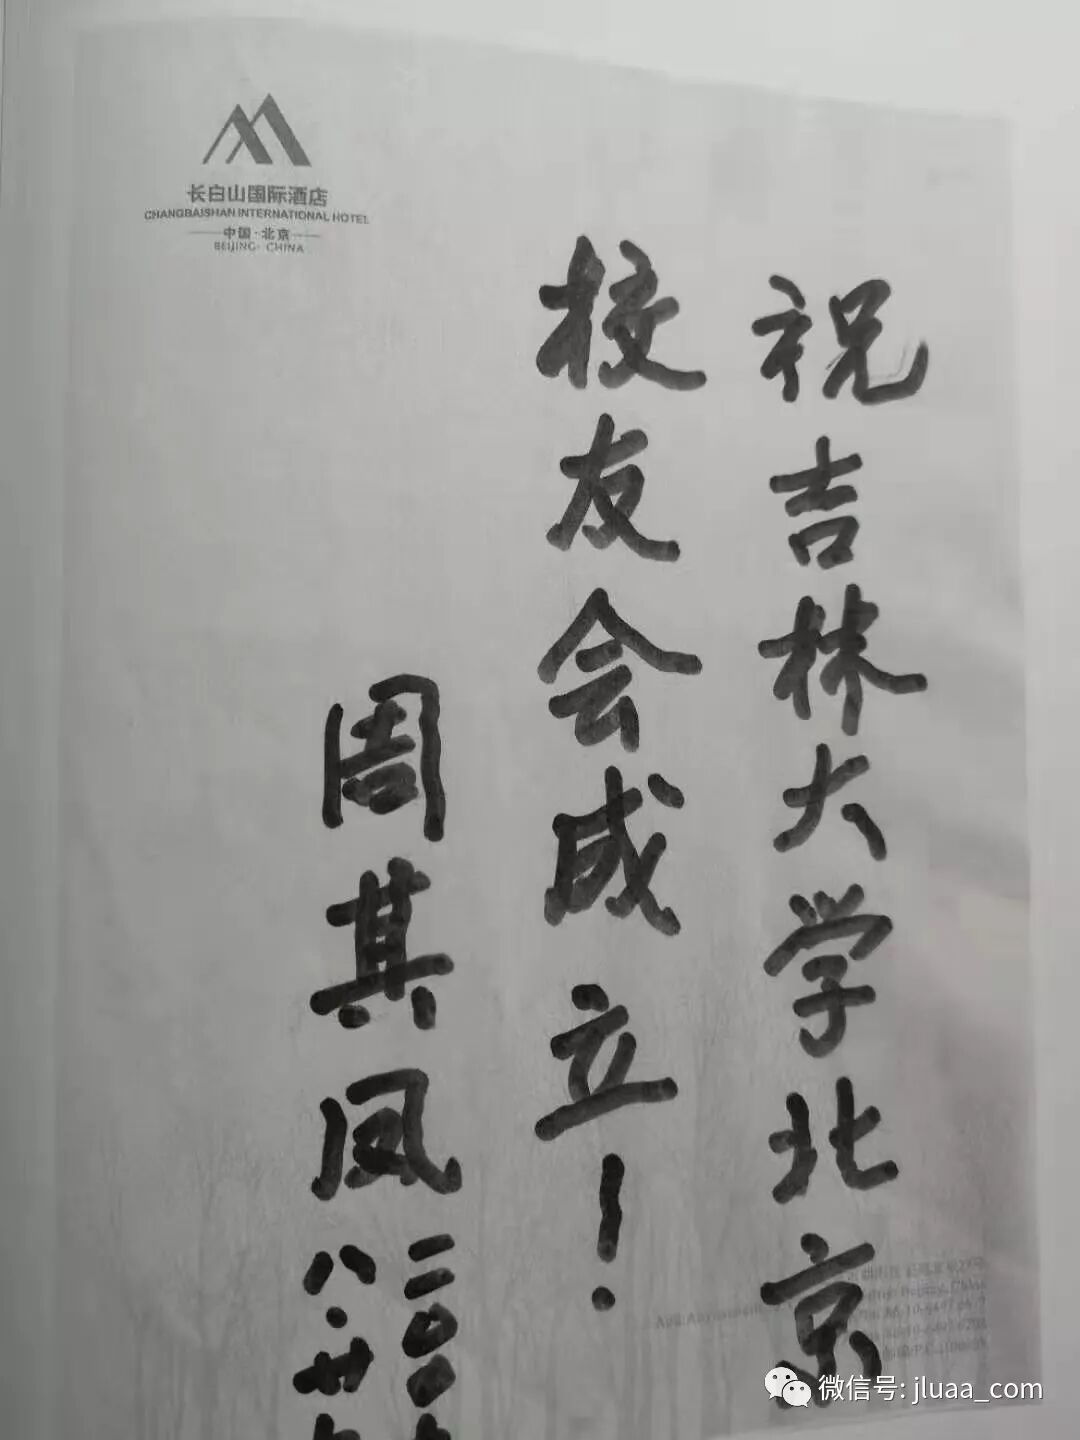 长白山国际酒店
CHANGBAISHAN INTERNATIONAL HOTEL
中国·北京
BEIJING·CHINA
祝吉林大学北京
校友会成立!
周其凤
二〇〇
八·廿
微信号: jluaa_com